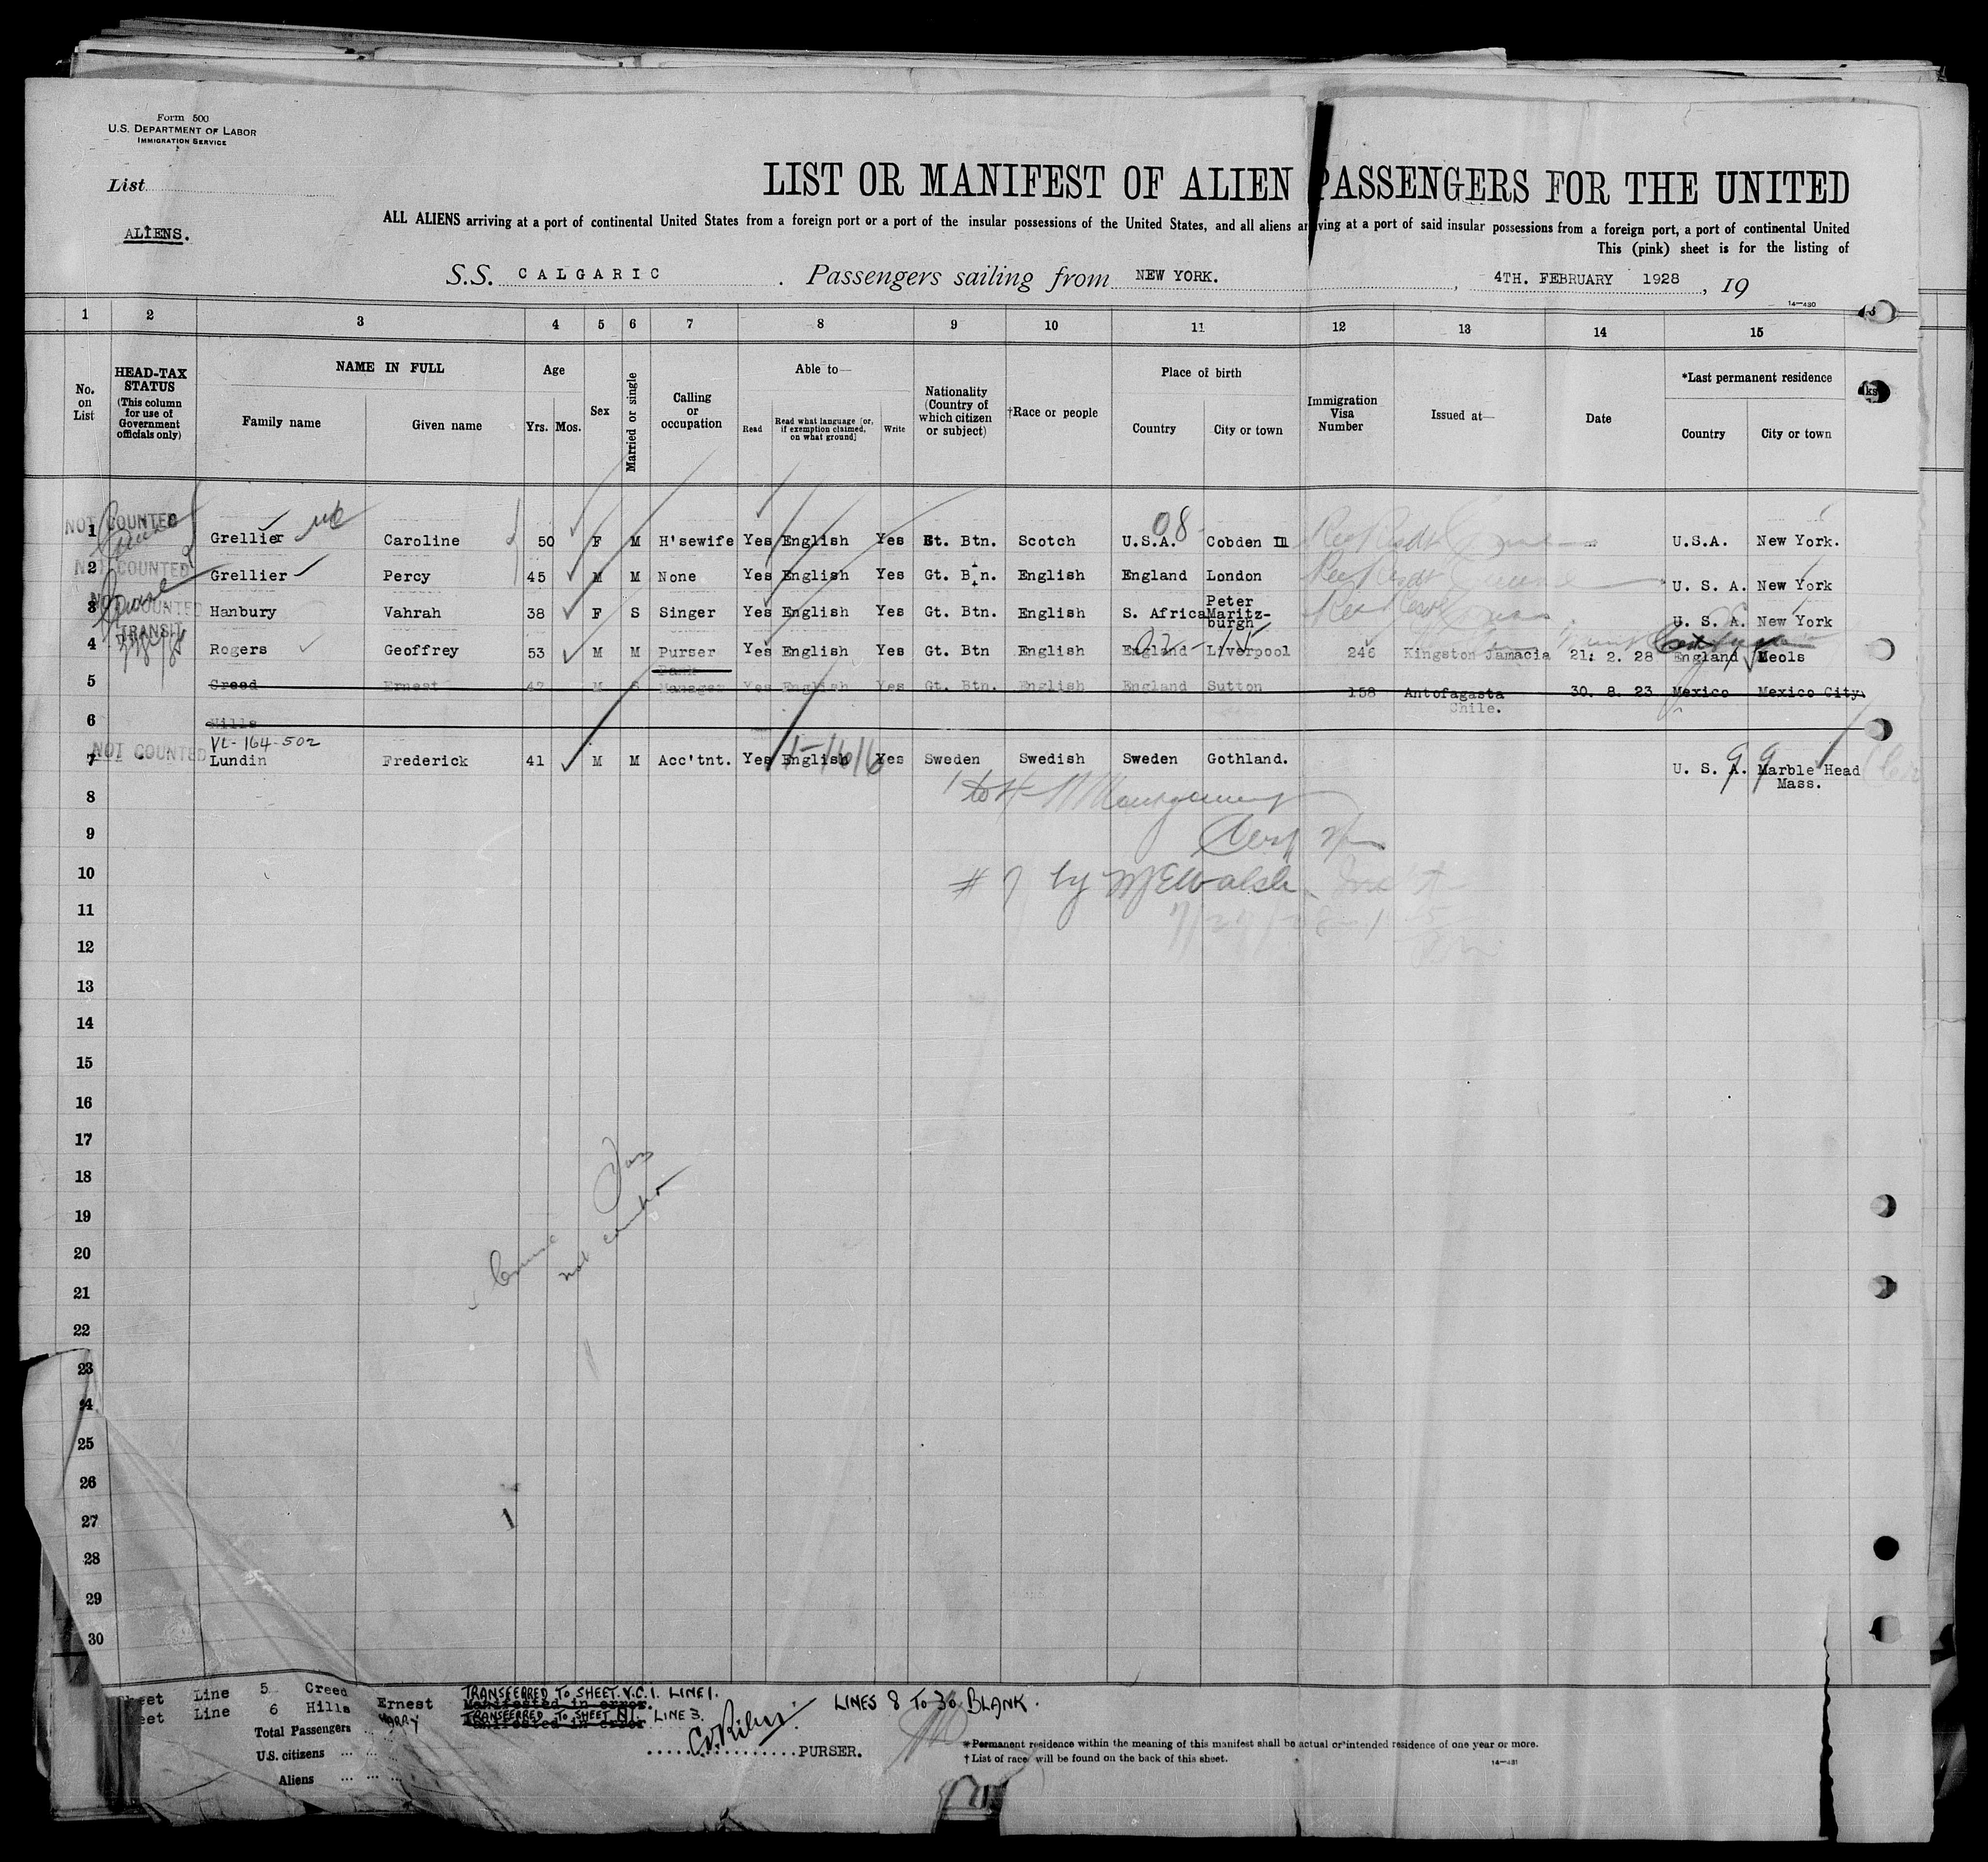 Form 500
U.S. DEPARTMENT OF LABOR
IMMIGRATION SERVICE
List
ALIENS.
LIST OR MANIFEST OF ALIEN PASSENGERS FOR THE UNITED
ALL ALIENS arriving at a port of continental United States from a foreign port or a port of the insular possessions of the United States, and all aliens arriving at a port of said insular possessions from a foreign port, a port of continental United
This (pink) sheet is for the listing of
S.S. CALGARIC. Passengers sailing from NEW YORK. , 4TH. FEBRUARY 1928 , 19
14—430
1 2 3 4 5 6 7 8 9 10 11 12 13 14 15
No. on List
HEAD-TAX STATUS (This column for use of Government officials only)
NAME IN FULL
Family name Given name
Age
Yrs. Mos.
Sex
Married or single
Calling or occupation
Able to—
Read Read what language [or, if exemption claimed, on what ground] Write
Nationality (Country of which citizen or subject)
†Race or people
Place of birth
Country City or town
Immigration Visa Number
Issued at—
Date
*Last permanent residence
Country City or town
NOT COUNTED
1 Grellier Caroline 50 F M H'sewife Yes English Yes Gt. Btn. Scotch U.S.A. 08 Cobden Ill U.S.A. New York.
NOT COUNTED
2 Grellier Percy 45 M M None Yes English Yes Gt. Btn. English England London U. S. A. New York
NOT COUNTED
3 Hanbury Vahrah 38 F S Singer Yes English Yes Gt. Btn. English S. Africa Peter Maritz-burgh U. S. A. New York
TRANSIT
4 Rogers Geoffrey 53 M M Purser Yes English Yes Gt. Btn English England Liverpool 246 Kingston Jamacia 21. 2. 28 England Meols
5 Creed Ernest 42 M S Bank Manager Yes English Yes Gt. Btn. English England Sutton 158 Antofagasta Chile. 30. 8. 23 Mexico Mexico City.
6 Hills
VL-164-502
NOT COUNTED
7 Lundin Frederick 41 M M Acc'tnt. Yes English Yes Sweden Swedish Sweden Gothland. U. S. A. Marble Head Mass.
8
1 to 4 Montgomery
9
10
# 7 by M E Walsh
11
12
13
14
15
16
17
18
19
20
21
22
23
24
25
26
27
28
29
30
not counted
Line 5 Creed Ernest TRANSFERRED TO SHEET V.C.1. LINE 1.
Manifested in error.
Line 6 Hills HARRY TRANSFERRED TO SHEET N1. LINE 3.
Manifested in error
LINES 8 TO 30 BLANK.
Total Passengers
U.S. citizens
Aliens
PURSER.
*Permanent residence within the meaning of this manifest shall be actual or intended residence of one year or more.
†List of races will be found on the back of this sheet.
14—431